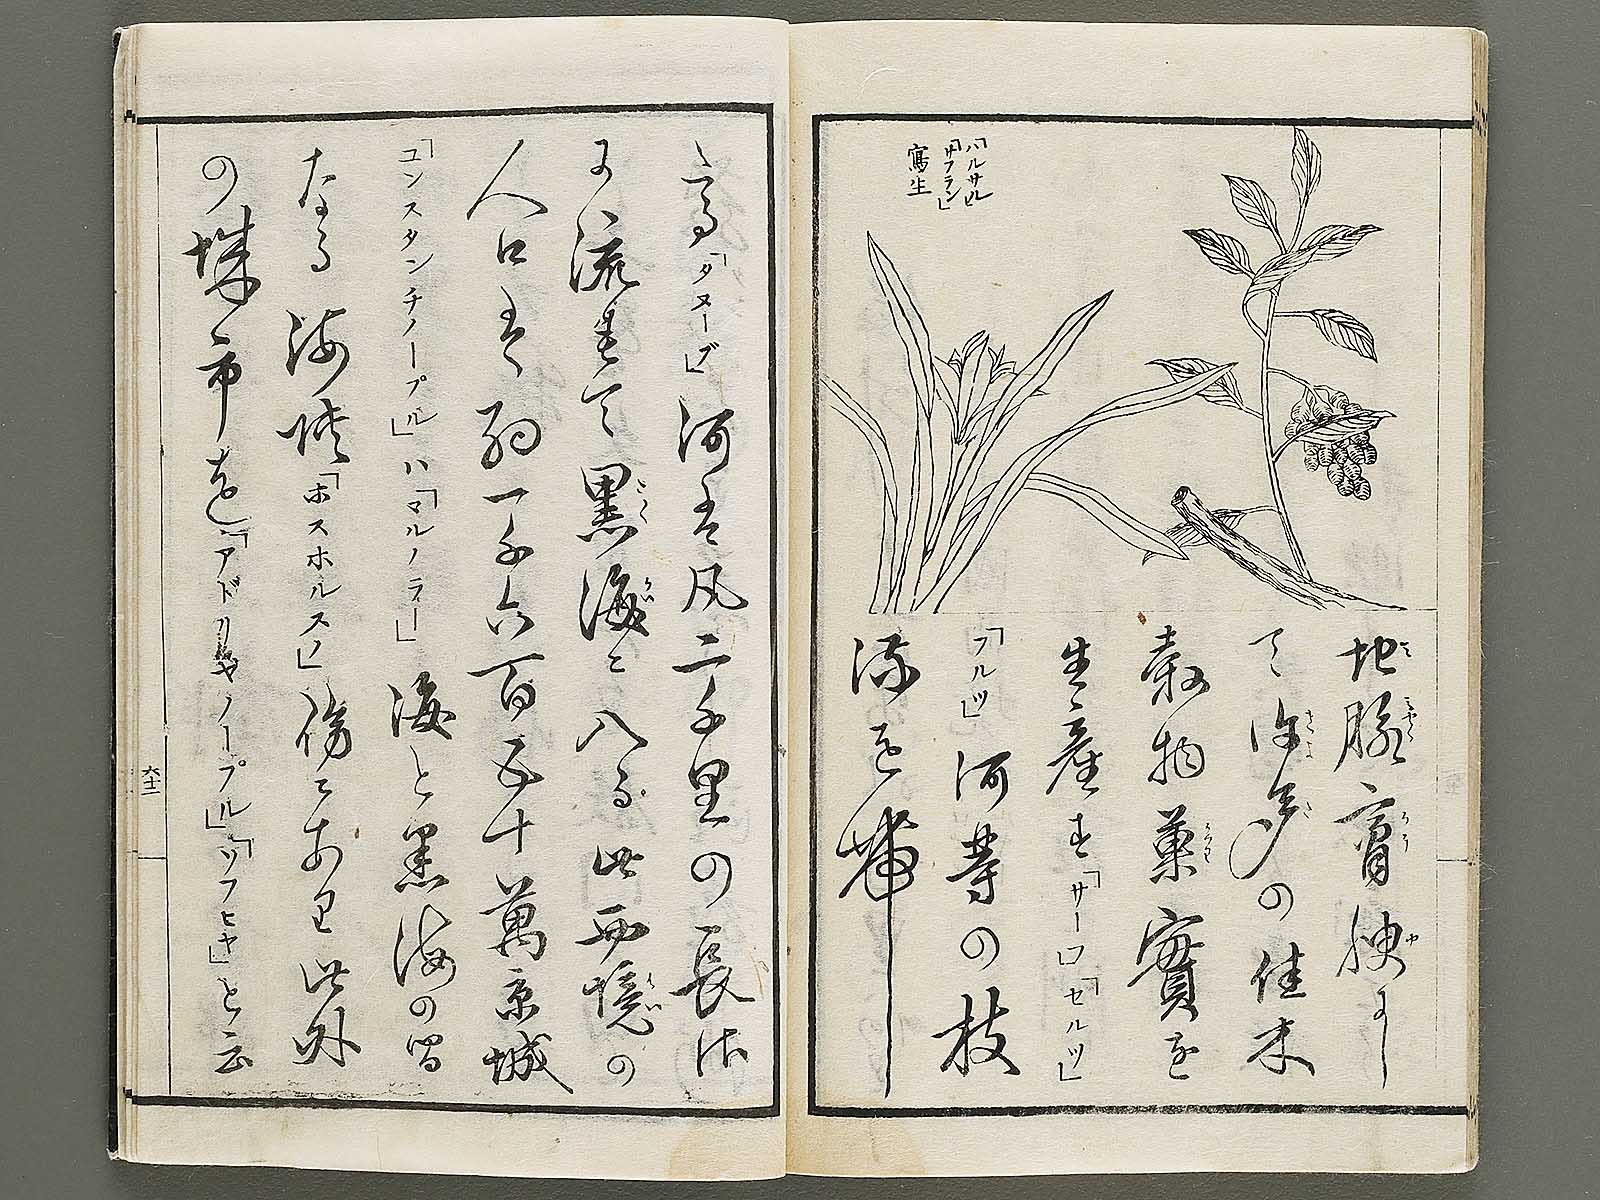 「バルサル」
「サフラン」
寫生
地脉膏腴にし
て許多の佳木
穀物菓實を
生産す「サーロ」「セルツ」
「フルツ」河等の枝
流を帯
「ダヌーブ」河は凡二千里の長流
に流れて黒海に入る此両境の
人口は約一千六百五十萬京城
「コンスタンチノープル」ハ「マルノラー」海と黒海の間
なる海峡「ホスホルス」ノ傍にあり此外
の城市を「アドリヤノープル」「ソフヒヤ」と云
六十二